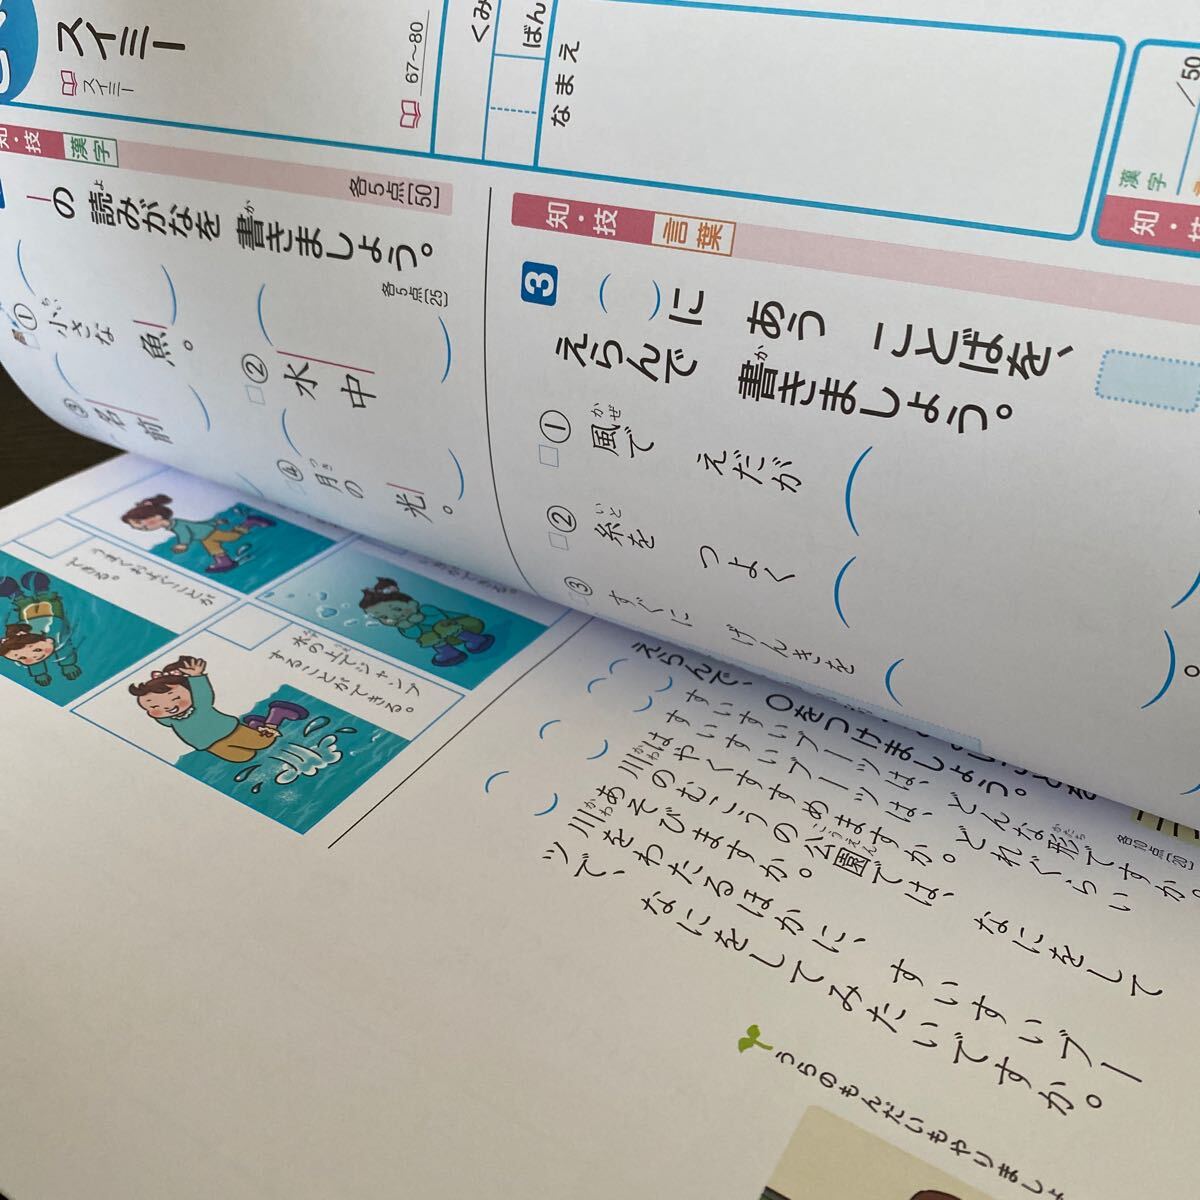 スイミー
スイミー
67〜80
くみ
ばん
なまえ
／50
漢字
知・技
知・技
漢字
各5点[50]
の 読みがなを 書きましょう。
各5点[25]
① 小さな 魚。
② 水中
③ 名前
④ 月の 光。
知・技
言葉
3
（　）に あう ことばを、
えらんで 書きましょう。
① 風で えだが
② 糸を つよく
③ すぐに げんきを
えらんで、○をつけましょう。
各10点[20]
すいすいブーツは、どんな形ですか。
すいすいブーツは、どれぐらい
はやくすすめますか。
川のむこうの公園では、なにをして
あそびますか。
川をわたるほかに、すいすいブー
ツで、なにをしてみたいですか。
うまくおよぐことが
できる。
水の上でジャンプ
することができる。
うらのもんだいもやりましょ